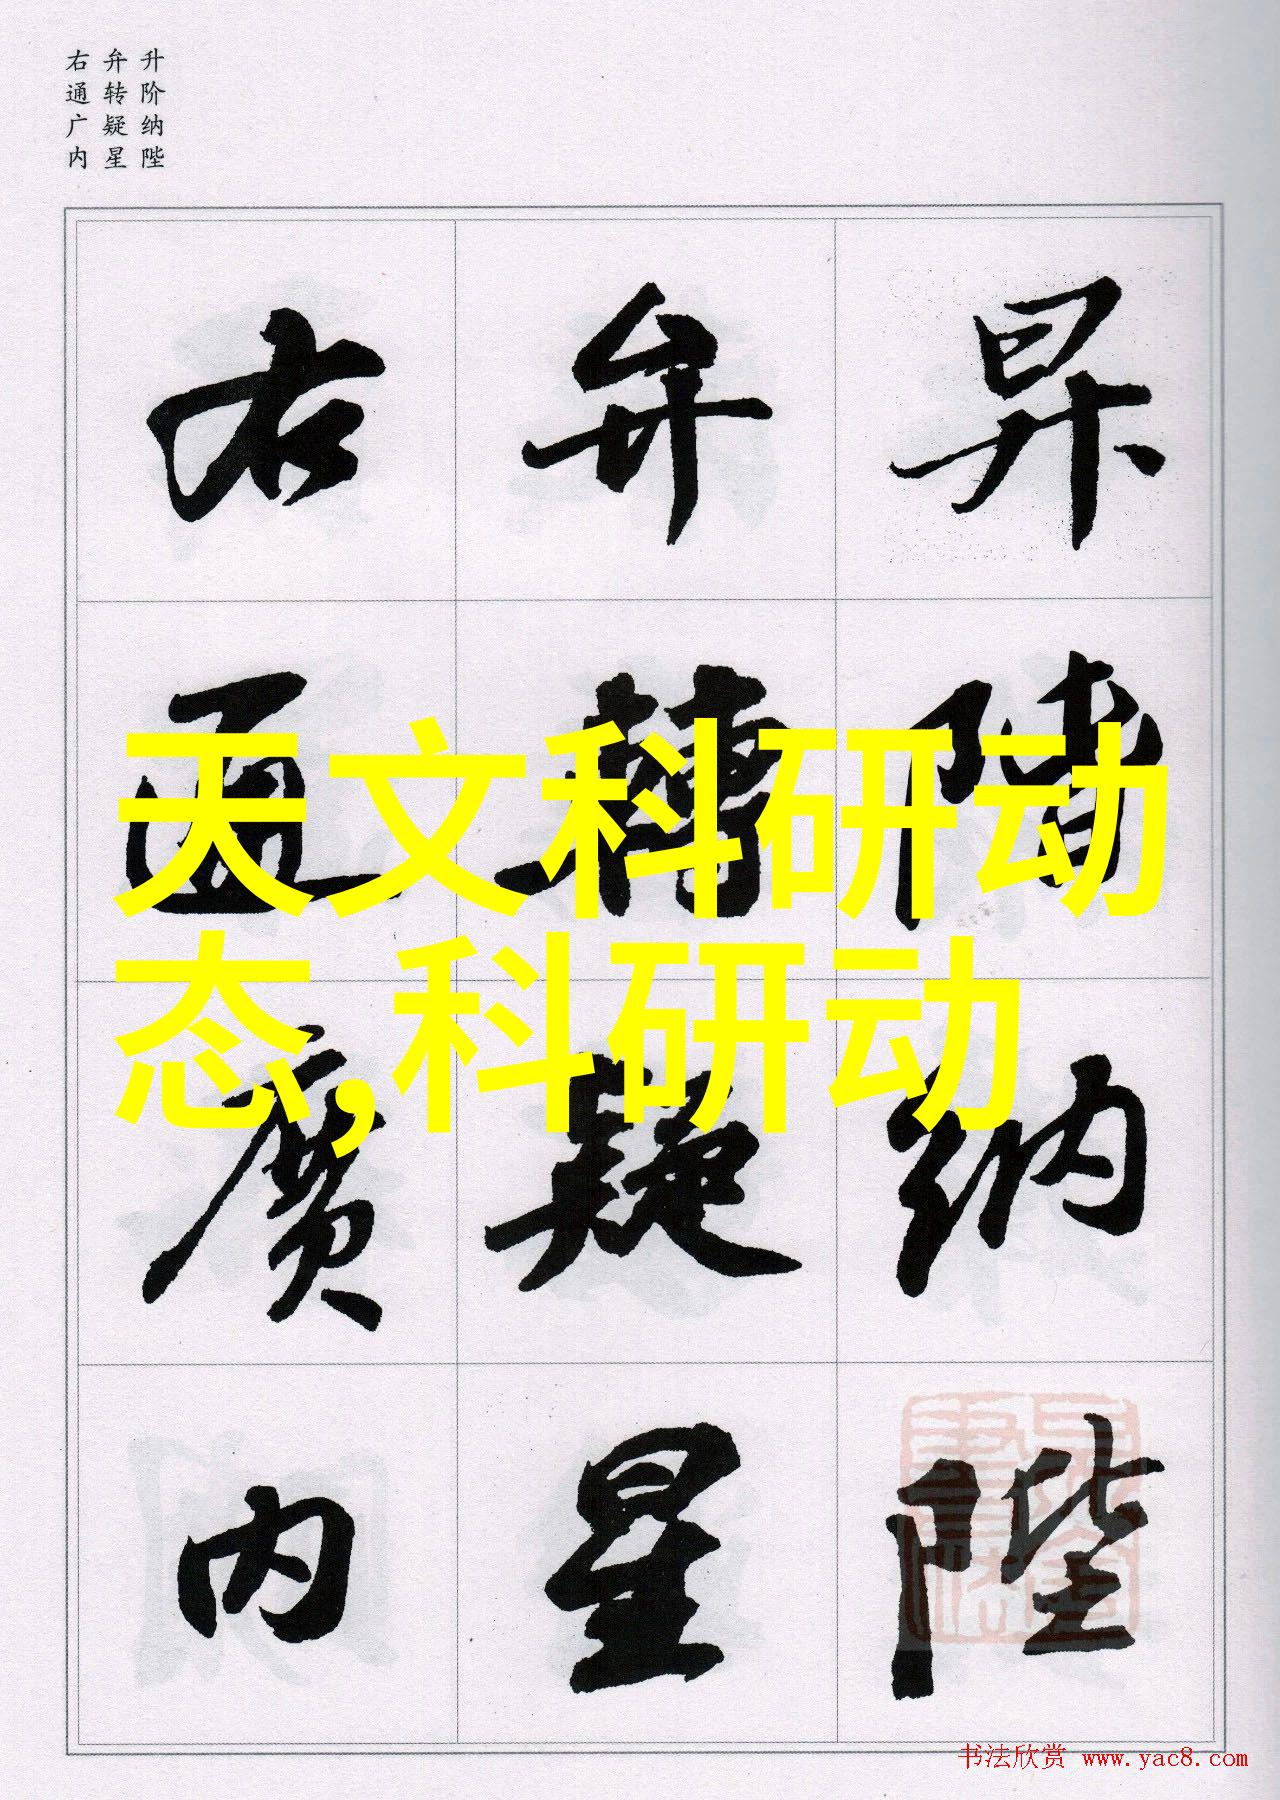 升阶纳陛
弁转疑星
右通广内
昇階納陛
弁轉疑星
右通廣内
天文科研动
态,科研动
书法欣赏 www.yac8.com